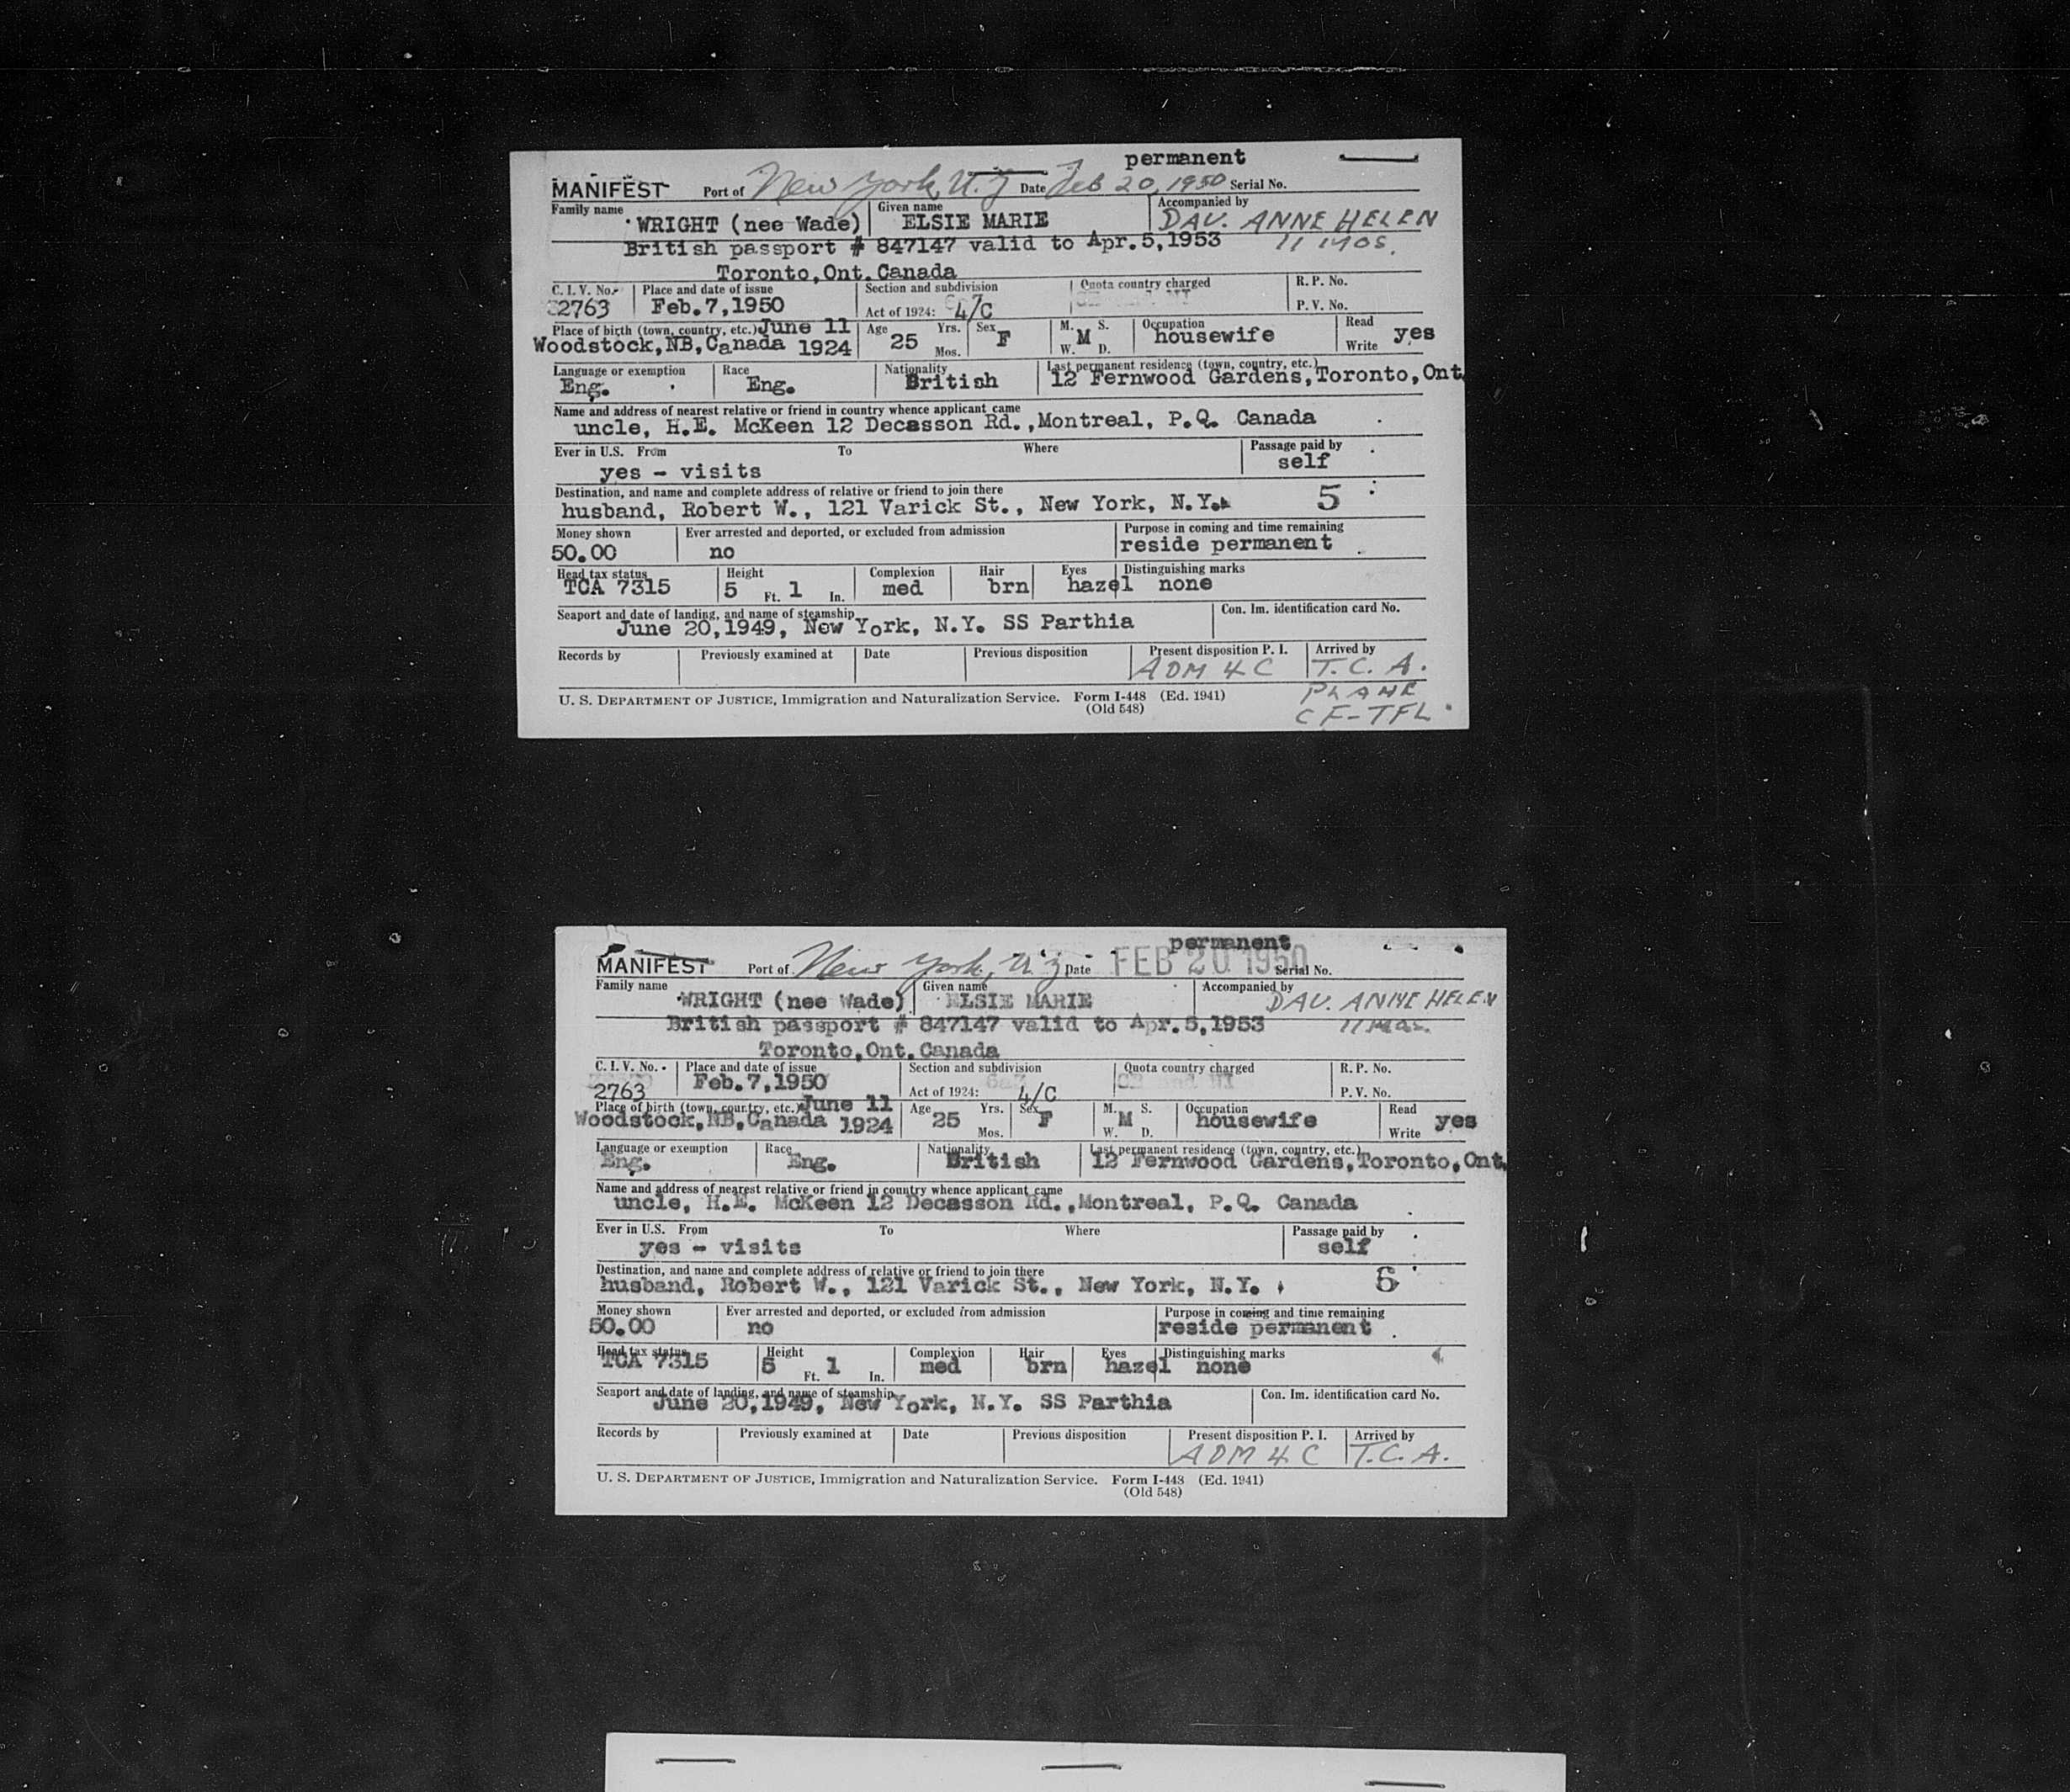 permanent
MANIFEST Port of New York, N.Y. Date Feb 20, 1950 Serial No.
Family name Given name Accompanied by
WRIGHT (nee Wade) ELSIE MARIE DAU. ANNE HELEN
British passport # 847147 valid to Apr.5,1953 11 MOS.
Toronto,Ont.Canada
C. I. V. No. Place and date of issue Section and subdivision Quota country charged R. P. No.
2763 Feb.7,1950 Act of 1924: 4/C P. V. No.
Place of birth (town, country, etc.) June 11 Age Yrs. Sex M. S. Occupation Read
Woodstock,NB,Canada 1924 25 Mos. F M W. D. housewife Write yes
Language or exemption Race Nationality Last permanent residence (town, country, etc.)
Eng. Eng. British 12 Fernwood Gardens,Toronto,Ont
Name and address of nearest relative or friend in country whence applicant came
uncle, H.E. McKeen 12 Decasson Rd.,Montreal, P.Q. Canada
Ever in U.S. From To Where Passage paid by
yes - visits self
Destination, and name and complete address of relative or friend to join there
husband, Robert W., 121 Varick St., New York, N.Y. 5
Money shown Ever arrested and deported, or excluded from admission Purpose in coming and time remaining
50.00 no reside permanent
Head tax status Height Complexion Hair Eyes Distinguishing marks
TCA 7315 5 Ft. 1 In. med brn hazel none
Seaport and date of landing, and name of steamship Con. Im. identification card No.
June 20,1949, New York, N.Y. SS Parthia
Records by Previously examined at Date Previous disposition Present disposition P. I. Arrived by
ADM 4 C T.C.A.
PLANE
U. S. DEPARTMENT OF JUSTICE, Immigration and Naturalization Service. Form I-448 (Ed. 1941)
(Old 548) CF-TFL
permanent
MANIFEST Port of New York, N.Y. Date FEB 20 1950 Serial No.
Family name Given name Accompanied by
WRIGHT (nee Wade) ELSIE MARIE DAU. ANNE HELEN
British passport # 847147 valid to Apr.5,1953 11 Mos.
Toronto,Ont.Canada
C. I. V. No. Place and date of issue Section and subdivision Quota country charged R. P. No.
2763 Feb.7,1950 Act of 1924: 4/C P. V. No.
Place of birth (town, country, etc.) June 11 Age Yrs. Sex M. S. Occupation Read
Woodstock,NB,Canada 1924 25 Mos. F M W. D. housewife Write yes
Language or exemption Race Nationality Last permanent residence (town, country, etc.)
Eng. Eng. British 12 Fernwood Gardens,Toronto,Ont.
Name and address of nearest relative or friend in country whence applicant came
uncle, H.E. McKeen 12 Decasson Rd.,Montreal, P.Q. Canada
Ever in U.S. From To Where Passage paid by
yes - visits self
Destination, and name and complete address of relative or friend to join there
husband, Robert W., 121 Varick St., New York, N.Y.
Money shown Ever arrested and deported, or excluded from admission Purpose in coming and time remaining
50.00 no reside permanent
Head tax status Height Complexion Hair Eyes Distinguishing marks
TCA 7315 5 Ft. 1 In. med brn hazel none
Seaport and date of landing, and name of steamship Con. Im. identification card No.
June 20,1949, New York, N.Y. SS Parthia
Records by Previously examined at Date Previous disposition Present disposition P. I. Arrived by
ADM 4 C T.C.A.
U. S. DEPARTMENT OF JUSTICE, Immigration and Naturalization Service. Form I-448 (Ed. 1941)
(Old 548)